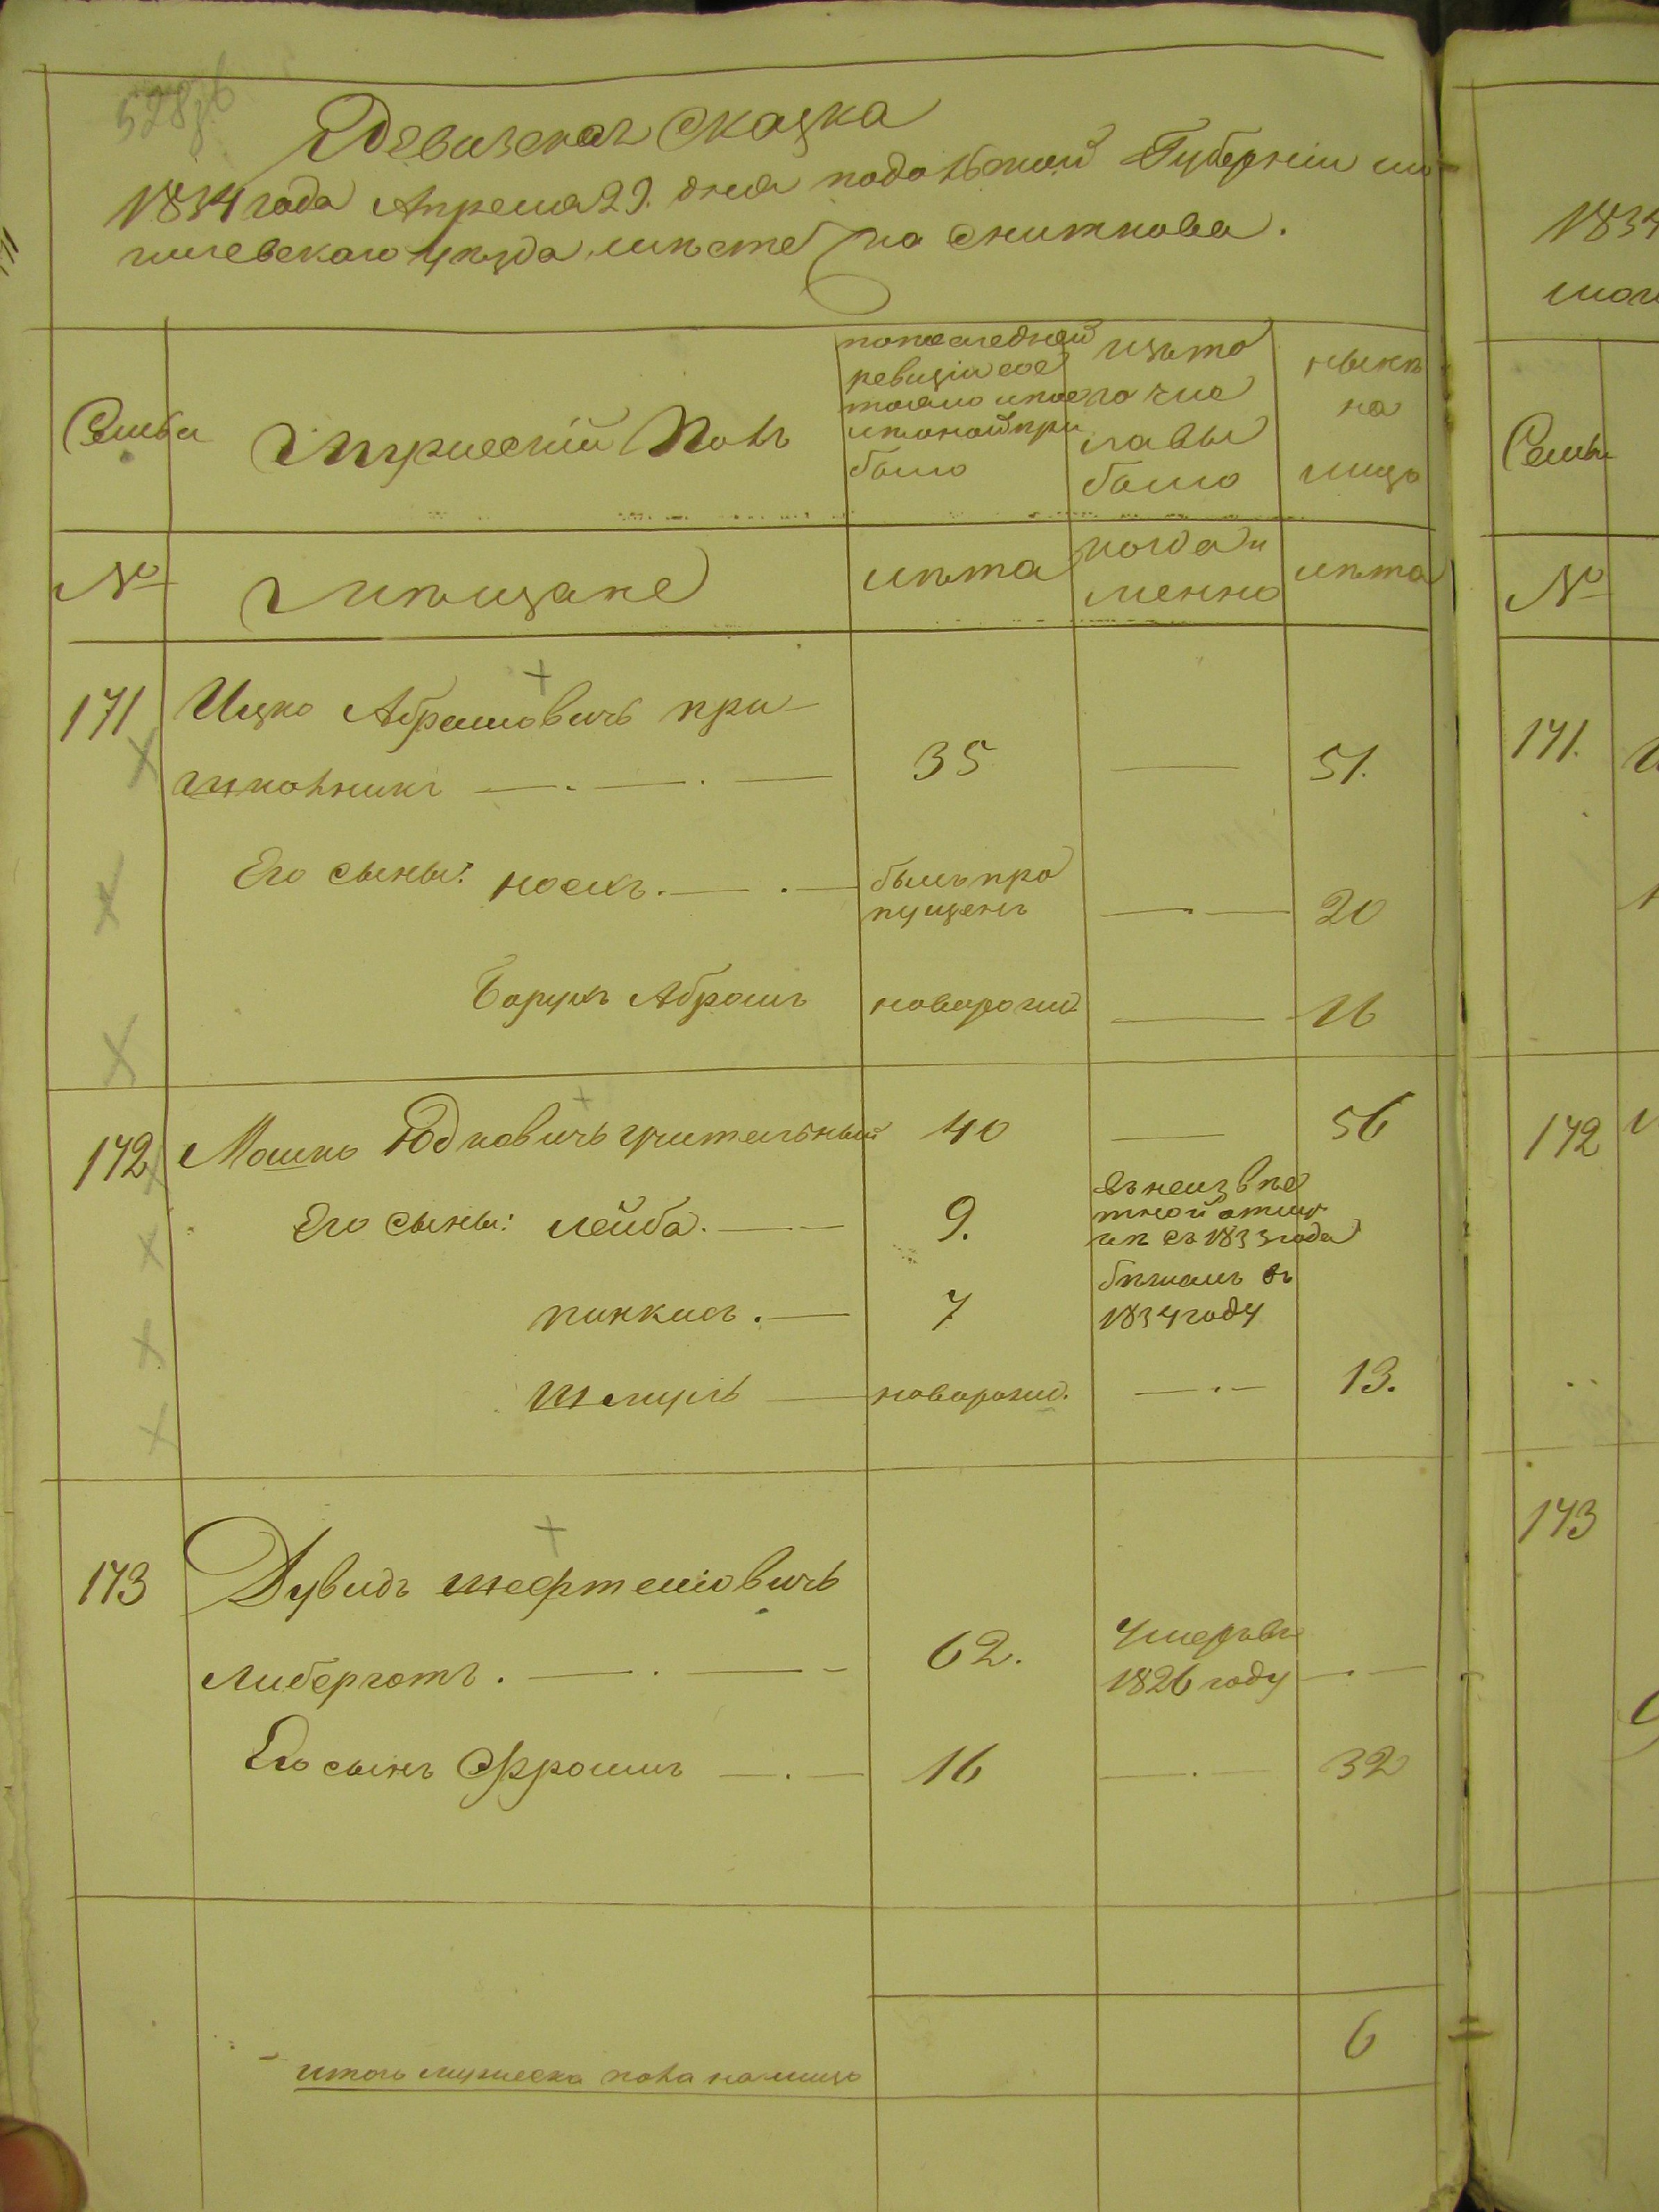 Ревизская сказка
1834 года Апреля 29. дня подольской Губернии мо
гилевского уезда местечка Сниткова.
Семьи
Мужеский Полъ
по последней
ревизіи сос
тояло и после
итоной при
было
изъ то
го чис
ла вы
было
ныне
на
лицо
№
Мещане
лета
когда и
менно
лета
171
Ицко Абрамовичъ при
школьникъ
35
51.
Его сыны: носехъ.
былъ про
пущенъ
20
Борухъ Абрамъ
новорож
16
172
Мошко Юдковичъ учительный
40
56
Его сыны: лейба.
9.
въ неизвес
тной отлуч
ке съ 1833 года
пинкасъ.
7
бежалъ въ
1834 году
Шмуль
новорож.
13.
173
Дувидъ шефтелiовичъ
Либерготъ.
62.
Умеръ въ
1826 году
Его сынъ Фроимъ
16
32
итого мужеска пола налицо
6
1834
мог
Семьи
№
171.
172
173